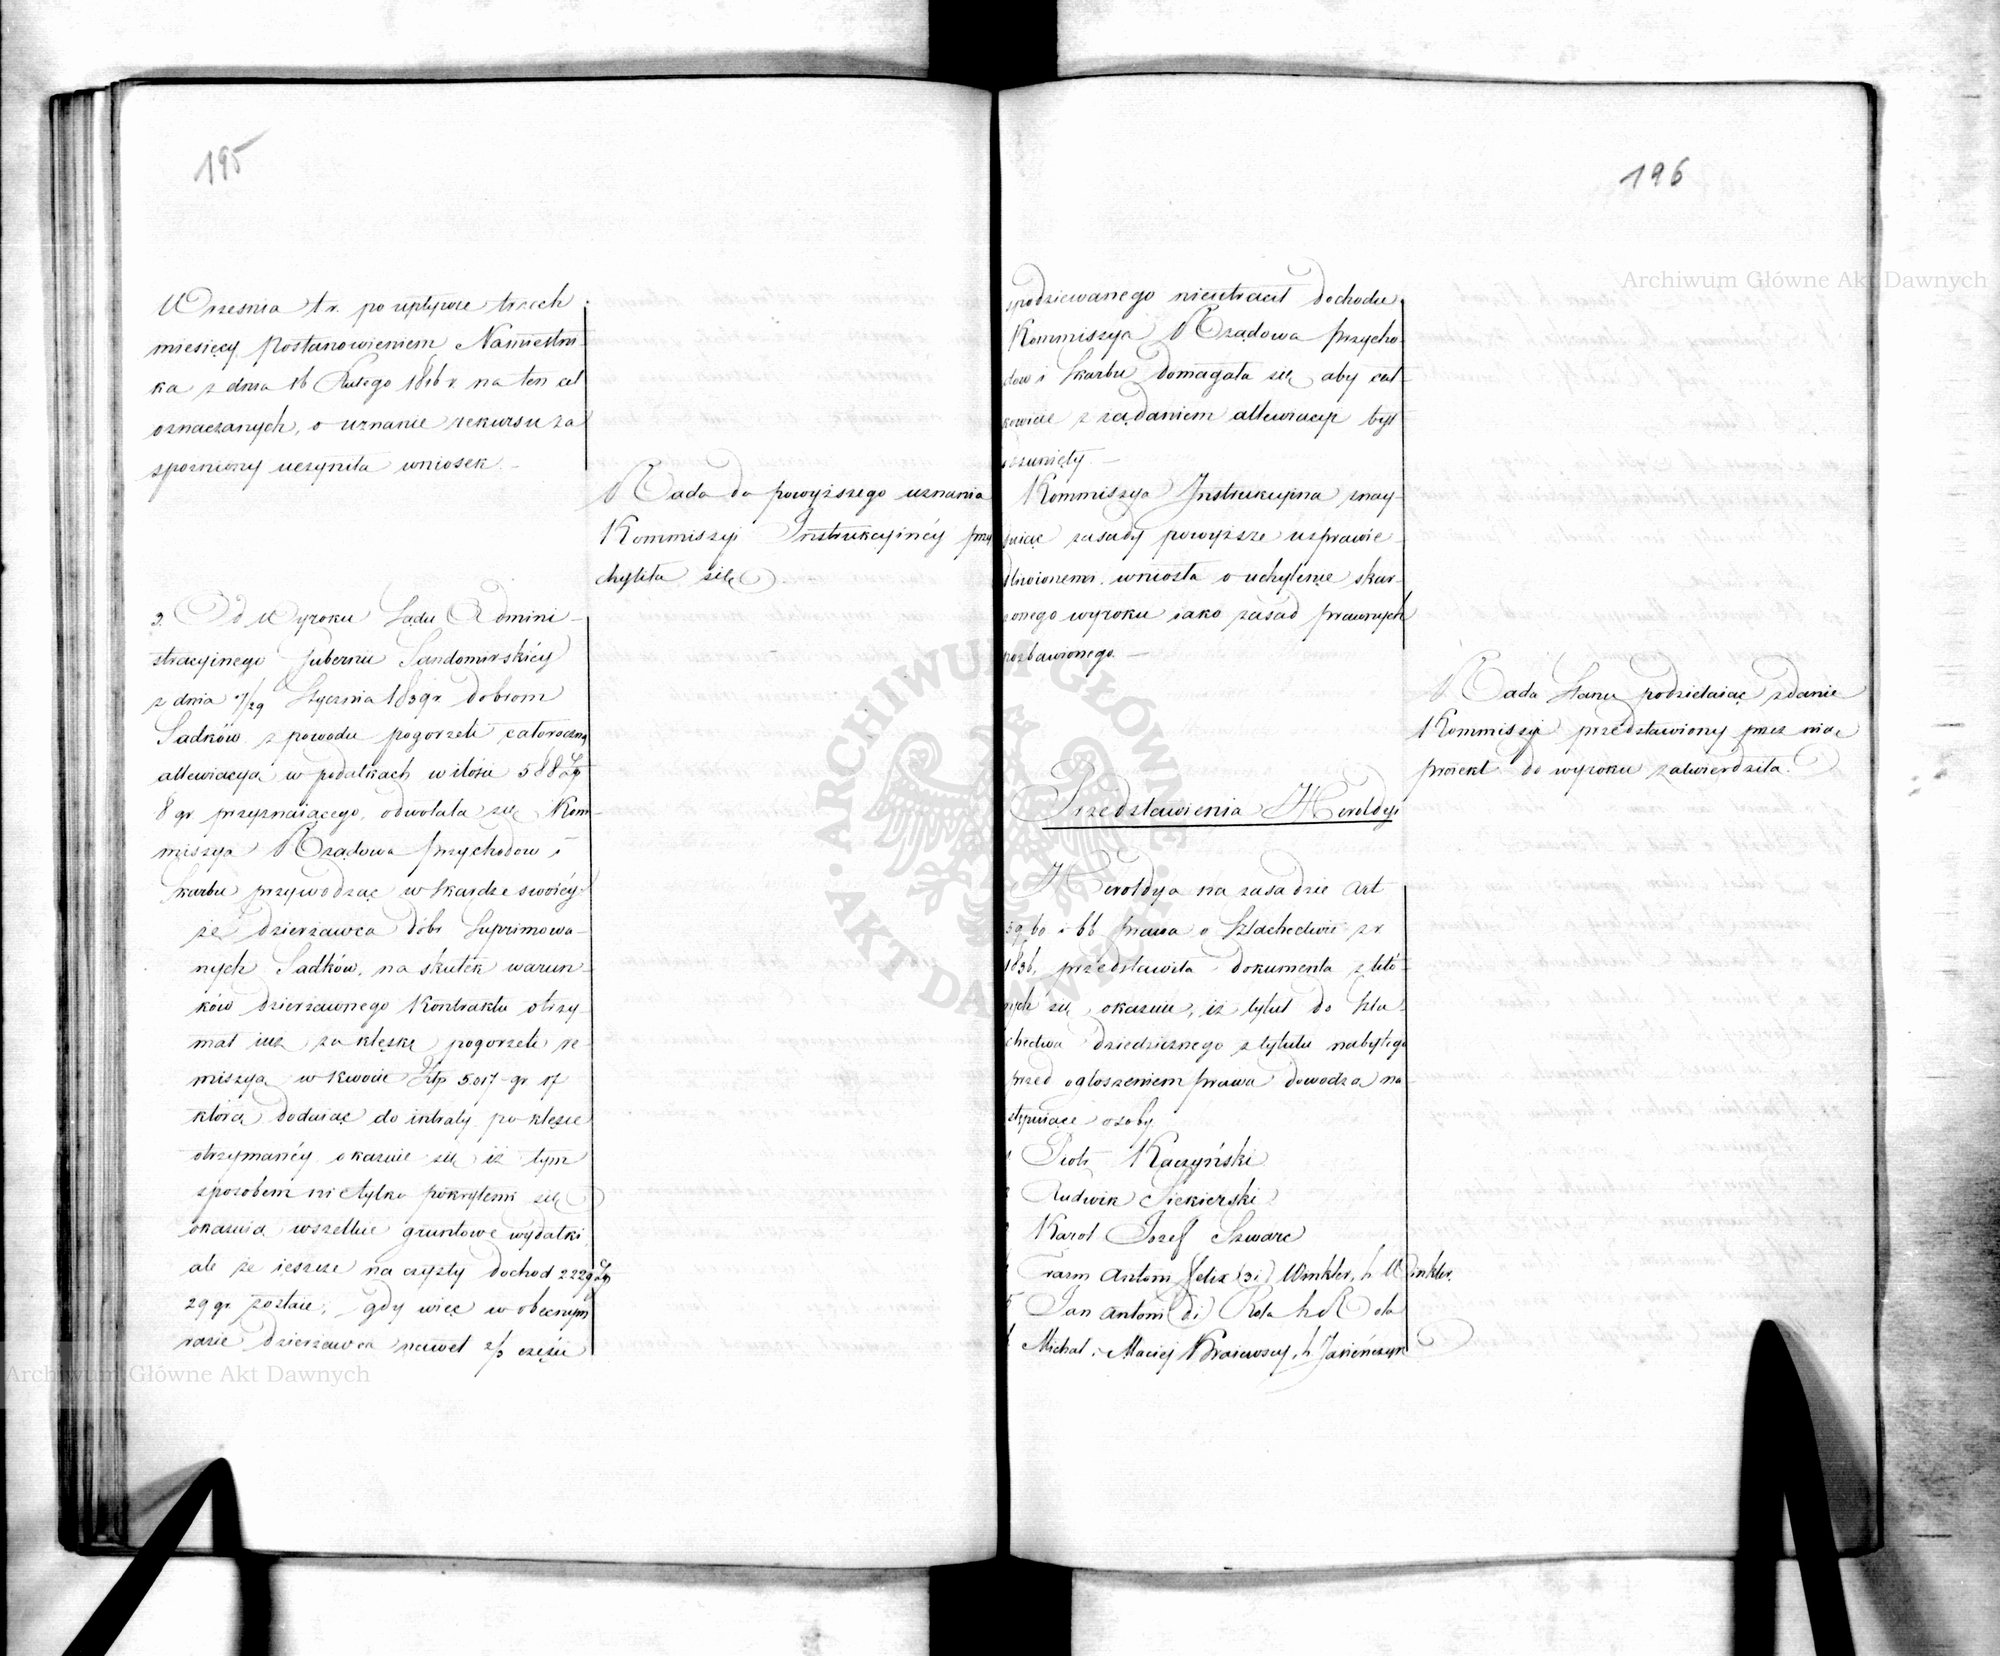 195
Września t.r. po upływie trzech
miesięcy Postanowieniem Namiestni-
ka z dnia 16 Lutego 1816 r. na ten cel
oznaczonych, o uznanie rekursu za
spozniony uczyniła wniosek. —
Rada do powyższego uznania
Kommissyi Instrukcyinéy przy
chyliła się
3. Od Wyroku Sądu Admini-
stracyinego Gubernii Sandomirskiéy
z dnia 17/29 Stycznia 1839 r. dobrom
Sadków z powodu pogorzeli całoroczną
allewiacyą w podatkach w ilości 588 Zp
8 gr. przyznaiącego, odwołała się Kom-
missya Rządowa Przychodow i
Skarbu przywodząc w Skardze swoiéy
że dzierżawca dóbr Supprimowa-
nych Sadków, na skutek warun-
ków dzierżawnego Kontraktu otrzy-
mał iuż za klęskę pogorzeli re-
missyą w kwocie Złp 5.017 gr 17
którą dodaiąc do intraty po klęsce
otrzymanéy okazuie się iż tym
sposobem nietylko pokrytemi się
okazuią wszelkie gruntowe wydatki
ale że ieszcze na czysty dochod 2229 Zp
29 gr. zostaie, gdy więc w obecnym
razie Dzierżawca nawet 2/3 części
196
spodziewanego nieutracił dochodu
Kommissya Rządowa Przycho-
dow i Skarbu domagała się aby cał-
kowicie z żądaniem allewiacyi był
usunięty. —
Kommissya Instrukcyina znay-
duiąc zasady powyższe usprawie-
dliwionemi, wniosła o uchylenie skar-
żonego wyroku iako zasad prawnych
pozbawionego. —
Rada Stanu podzielaiąc zdanie
Kommissyi przedstawiony przez nią
proiekt do wyroku zatwierdziła.
Przedstawienia Heroldyi
Heroldya na zasadzie Art
59, 60 i 66 Prawa o Szlachectwie z r.
1836, przedstawiła dokumenta z któ-
rych się okazuie, iż tytuł do Szla-
chectwa dziedzicznego z tytułu nabytego
przed ogłoszeniem prawa dowodzą na-
stępuiące osoby
1 Piotr Kaczyński
2 Ludwik Siekierski
3 Karol Jozef Szwarc
4 Erazm Antoni Felix (3 i) Winkler, h. Winkler.
5 Jan Antoni (2 i) Rola h. Rola
6 Michał i Maciej Kraiewscy, h. Jasieńczyk
Archiwum Główne Akt Dawnych
Archiwum Główne Akt Dawnych
ARCHIWUM GŁÓWNE · AKT DAWNYCH ·